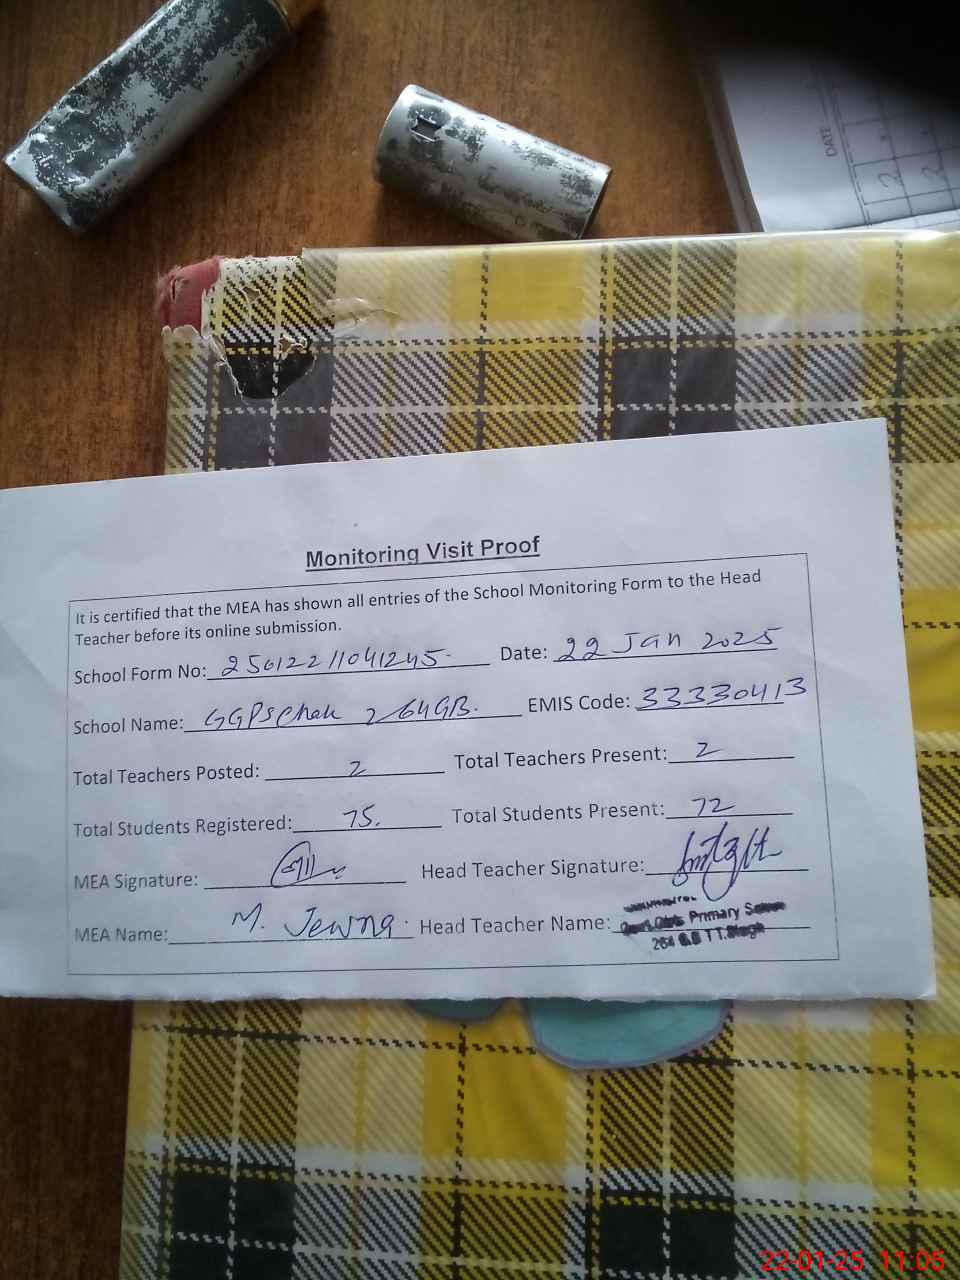 DATE
2
2
Monitoring Visit Proof
It is certified that the MEA has shown all entries of the School Monitoring Form to the Head
Teacher before its online submission.
School Form No: 25012211041245 Date: 22 Jan 2025
School Name: GGPS Chak 264GB. EMIS Code: 33330413
Total Teachers Posted: 2 Total Teachers Present: 2
Total Students Registered: 75. Total Students Present: 72
MEA Signature: Head Teacher Signature:
MEA Name: M. Head Teacher Name: Primary
264 G.B T.T.Singh
22-01-25 11:05